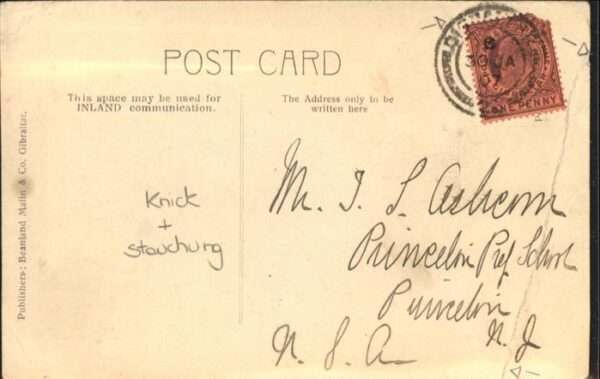 POST CARD
This space may be used for
INLAND communication.
The Address only to be
written here
Publishers: Beanland Malin & Co. Gibraltar.
Knick
+
Stauchung
Mr. T. S. Ashcom
Princeton Prep School
Princeton
N. J.
U. S. A.
8
30 JA
07
ONE PENNY